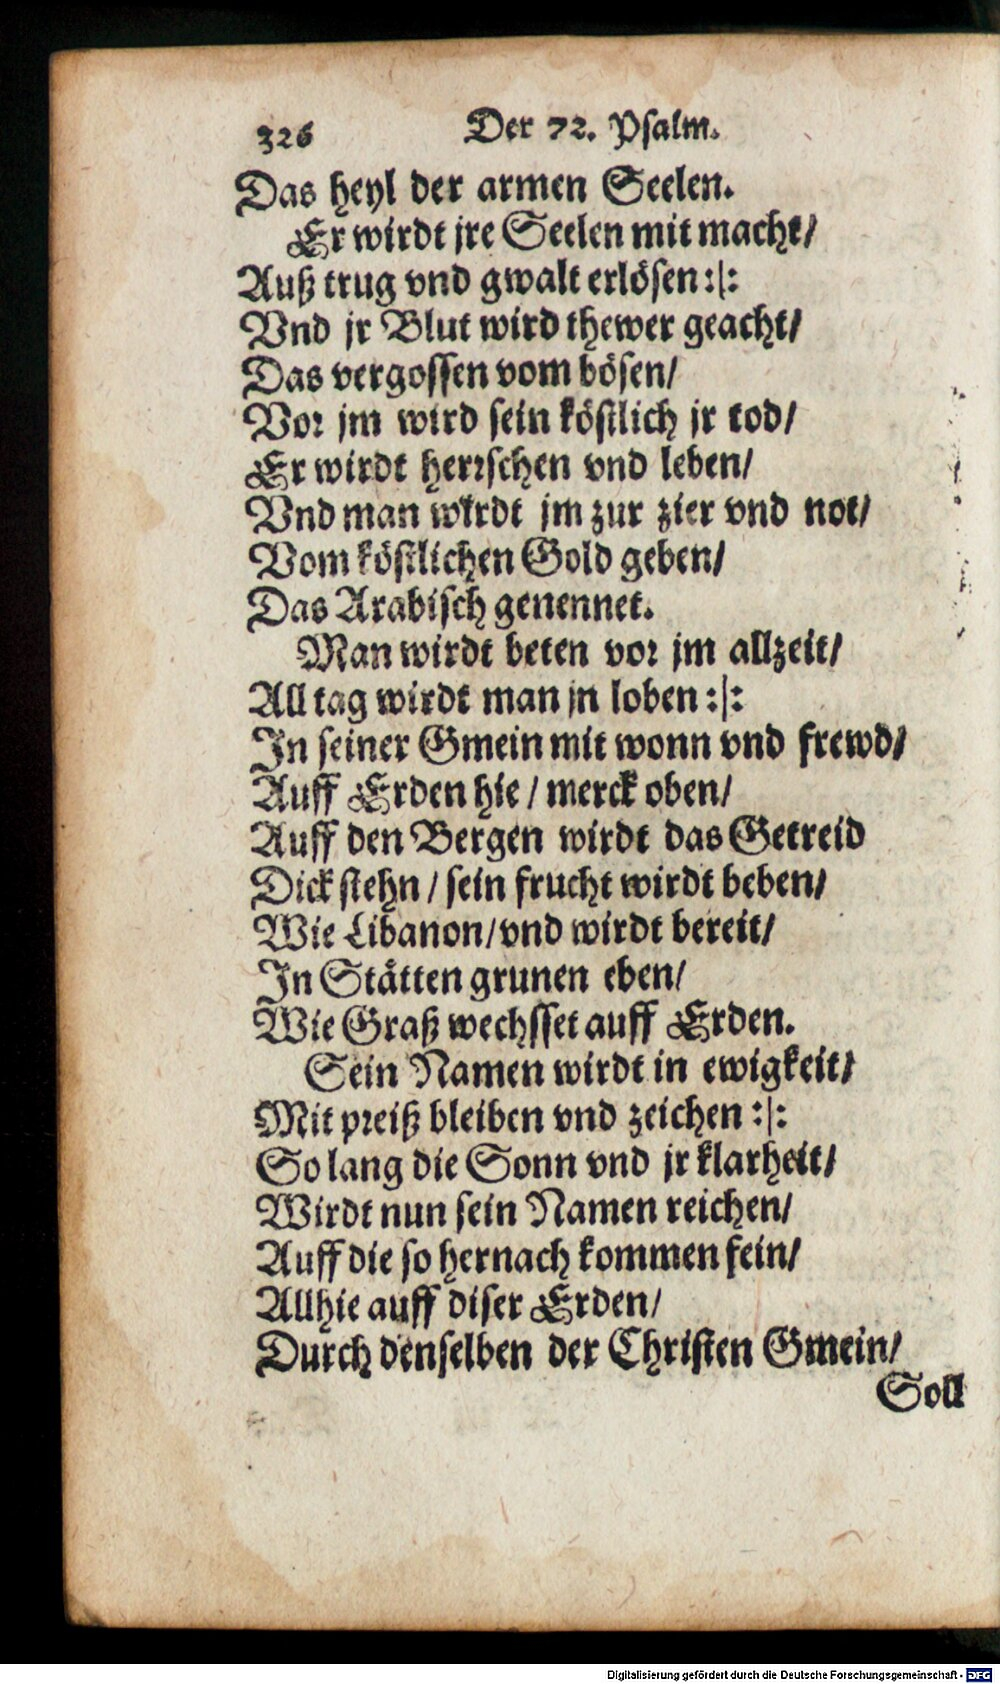 326 Der 72. Psalm.
Das heyl der armen Seelen.
Er wirdt jre Seelen mit macht/
Auß trug vnd gwalt erlösen :|:
Vnd jr Blut wird thewer geacht/
Das vergossen vom bösen/
Vor jm wird sein köstlich jr tod/
Er wirdt herrschen vnd leben/
Vnd man wirdt jm zur zier vnd not/
Vom köstlichen Gold geben/
Das Arabisch genennet.
Man wirdt beten vor jm allzeit/
All tag wirdt man jn loben :|:
In seiner Gmein mit wonn vnd frewd/
Auff Erden hie / merck oben/
Auff den Bergen wirdt das Getreid
Dick stehn / sein frucht wirdt beben/
Wie Libanon/ vnd wirdt bereit/
In Stätten grunen eben/
Wie Graß wechsset auff Erden.
Sein Namen wirdt in ewigkeit/
Mit preiß bleiben vnd zeichen :|:
So lang die Sonn vnd jr klarheit/
Wirdt nun sein Namen reichen/
Auff die so hernach kommen fein/
Allhie auff diser Erden/
Durch denselben der Christen Gmein/
Soll
Digitalisierung gefördert durch die Deutsche Forschungsgemeinschaft - DFG